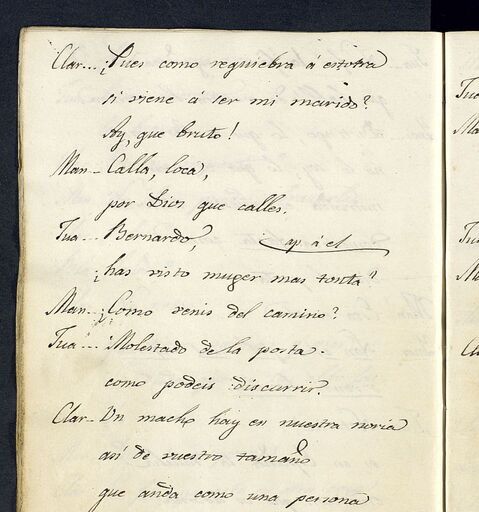 Clar... ¿Pues como requiebra á estotra
si viene á ser mi marido?
Ay, que bruto!
Man- Calla, loca,
por Dios que calles.
Jua... Bernardo, ap. á el
¿has visto muger mas tonta?
Man- ¿Cómo venis del camino?
Jua... Molestado de la posta
como podeis discurrir.
Clar- Un macho hay en nuestra noria
así de vuestro tamaño
que anda como una persona
Jua
Ma
Jua
M
Cl